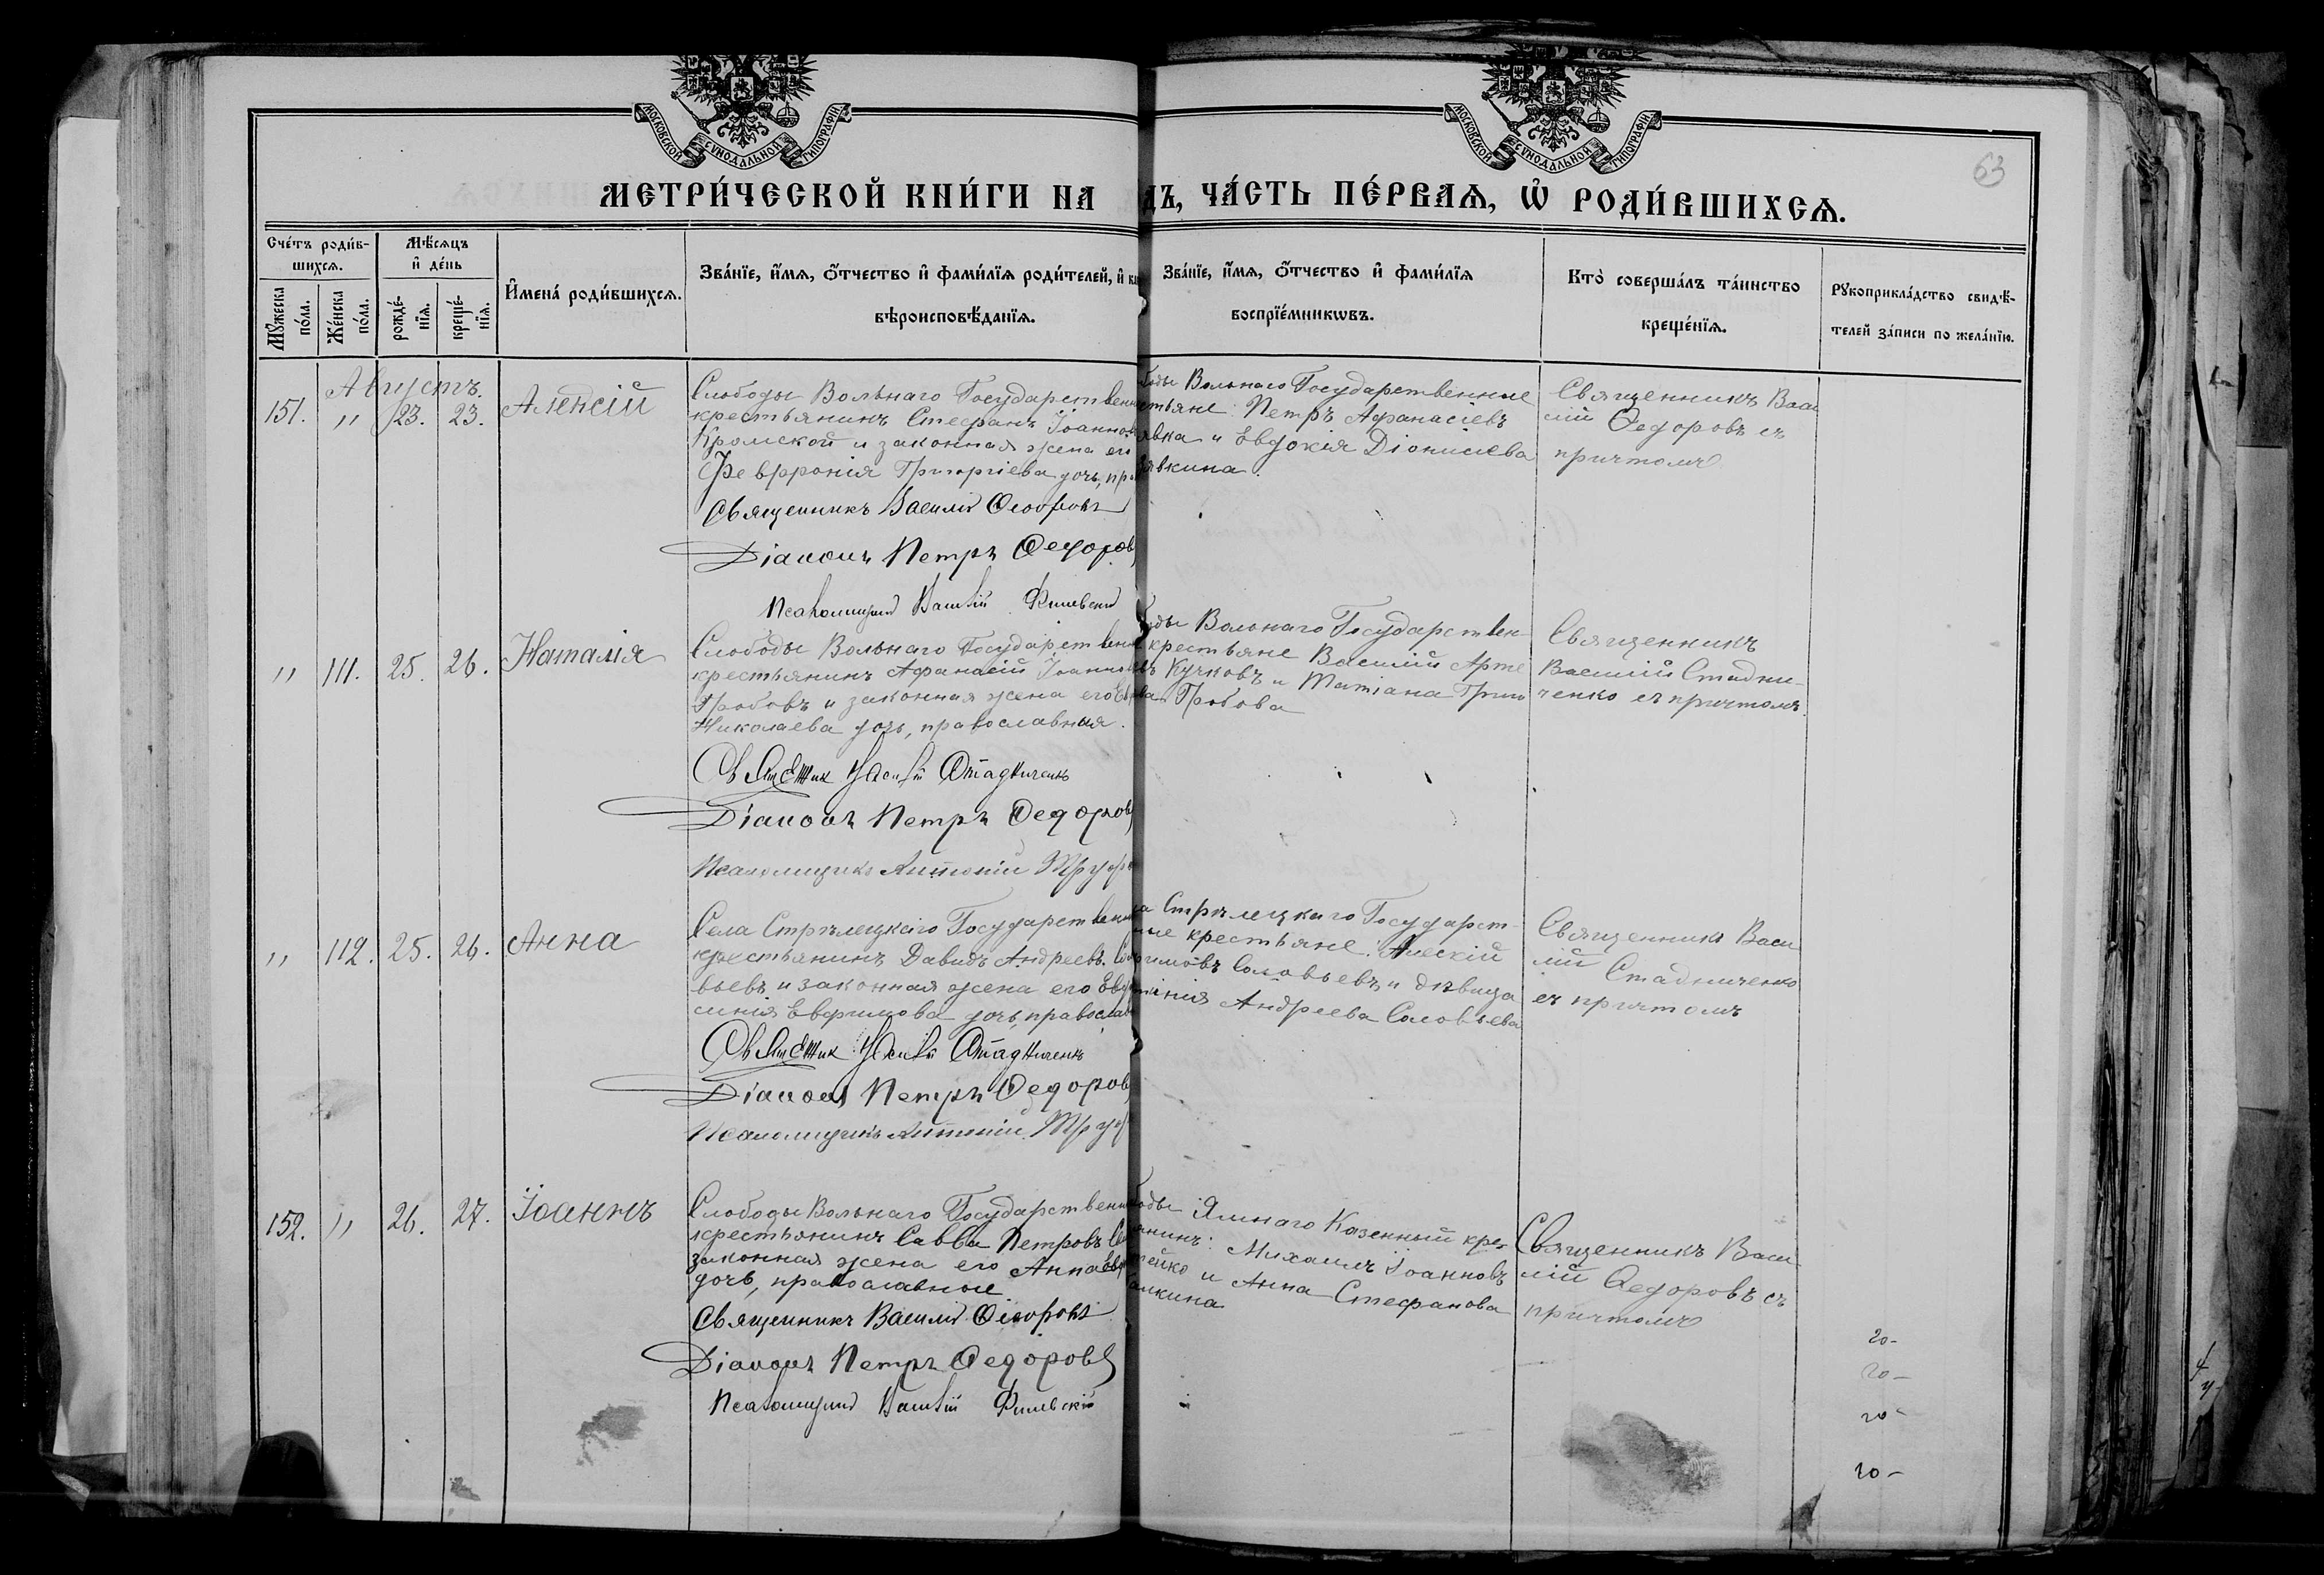 МОСКОВСКОЙ СУНОДАЛЬНОЙ ТИПОГРАФІИ
МОСКОВСКОЙ СУНОДАЛЬНОЙ ТИПОГРАФІИ
63
МЕТРИ́ЧЕСКОЙ КНИ́ГИ НА ДЪ, ЧА́СТЬ ПЕ́РВАѦ, Ѡ РОДИ́ВШИХСѦ.
Сче́тъ роди́в-
шихсѧ.
Мꙋжеска по́ла.
Же́нска по́ла.
Мѣ́сѧцъ
и҆ де́нь
рожде́-
нїѧ.
креще́-
нїѧ.
И҆мена̀ роди́вшихсѧ.
Зва́нїе, и҆́мѧ, ѻ҆́тчество и҆ фами́лїѧ роди́телей, и҆
вѣроисповѣ́данїѧ.
Зва́нїе, и҆́мѧ, ѻ҆́тчество и҆ фами́лїѧ
воспрїе́мникѡвъ.
Кто̀ соверша́лъ та́инство
креще́нїѧ.
Рꙋкоприкла́дство свидѣ́-
телей за́писи по жела́нїю.
Августъ.
151. " 23. 23. Алексій
Слободы Вольнаго Государственн
крестьянинъ Стефанъ Іоанновъ
Кромской и законная жена его
Феврронія Григоріева дочь, пра
Священникъ Василій Ѳеодоровъ
Діаконъ Петръ Ѳедоровъ
Псаломщикъ
боды Вольнаго Государственные
стьяне: Петръ Афанасіевъ
явка и Евдокія Діонисіева
явкина.
Священникъ Васи
лій Ѳедоровъ съ
причтомъ
" 111. 25. 26. Наталія
Слободы Вольнаго Государственн
крестьянинъ Афанасій Іоанновъ
Гробовъ и законная жена его
Николаева дочь, православная.
Священик Василій Стадниченко
Діаконъ Петръ Ѳедоровъ
Псаломщикъ Антоній
оды Вольнаго Государствен-
крестьяне Василій Арте
въ Кучковъ и Татіана Григо
ва Гробова
Священникъ
Василій Стадни-
ченко съ причтомъ.
" 112. 25. 26. Анна
Села Стрѣлецкаго Государственн
крестьянинъ Давидъ Андреевъ Соло
вьевъ и законная жена его Евдо
синія Евфимова дочь, православ
Священик Василій Стадниченко
Діаконъ Петръ Ѳедоровъ
Псаломщикъ Антоній
а Стрѣлецкаго Государст-
ные крестьяне: Алексій
фимовъ Соловьевъ и дѣвица
Андреева Соловьева
Священникъ Васи
лій Стадниченко
съ причтомъ
152. " 26. 27. Іоаннъ
Слободы Вольнаго Государственн
крестьянинъ Савва Петровъ
законная жена его Анна
дочь, православные
Священникъ Василій Ѳеодоровъ
Діаконъ Петръ Ѳедоровъ
Псаломщикъ
боды Ямнаго Казенный кре-
янинъ: Михаилъ Іоанновъ
тейко и Анна Стефанова
алкина
Священникъ Васи
лій Ѳедоровъ съ
причтомъ
20-
20-
20-
20-